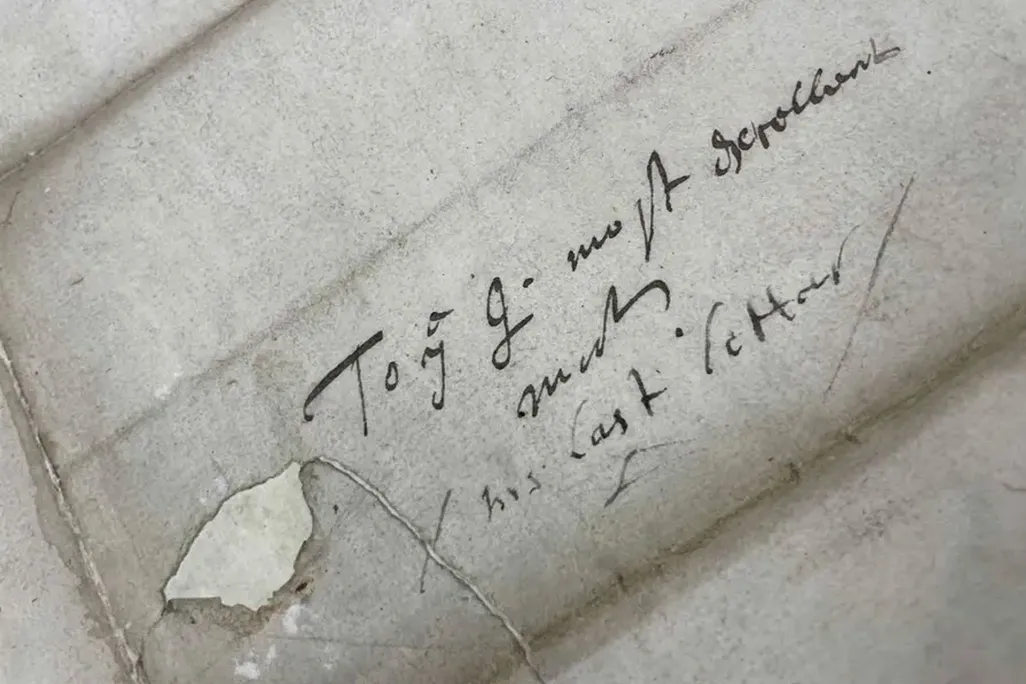 To yᵉ Q. most Excellent
maty.
his last letter